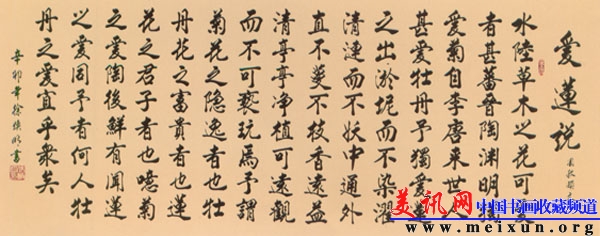 愛蓮説
水陸草木之花可愛
者甚蕃晉陶淵明獨
愛菊自李唐來世人
甚愛牡丹予獨愛蓮
之出淤埿而不染濯
清漣而不妖中通外
直不蔓不枝香遠益
清亭亭净植可遠觀
而不可褻玩焉予謂
菊花之隐逸者也牡
丹花之富貴者也蓮
花之君子者也噫菊
之愛陶後鮮有聞蓮
之愛同予者何人牡
丹之愛宜乎衆矣
辛卯 徐 書
美讯网 中国书画收藏频道
www.meixun.org